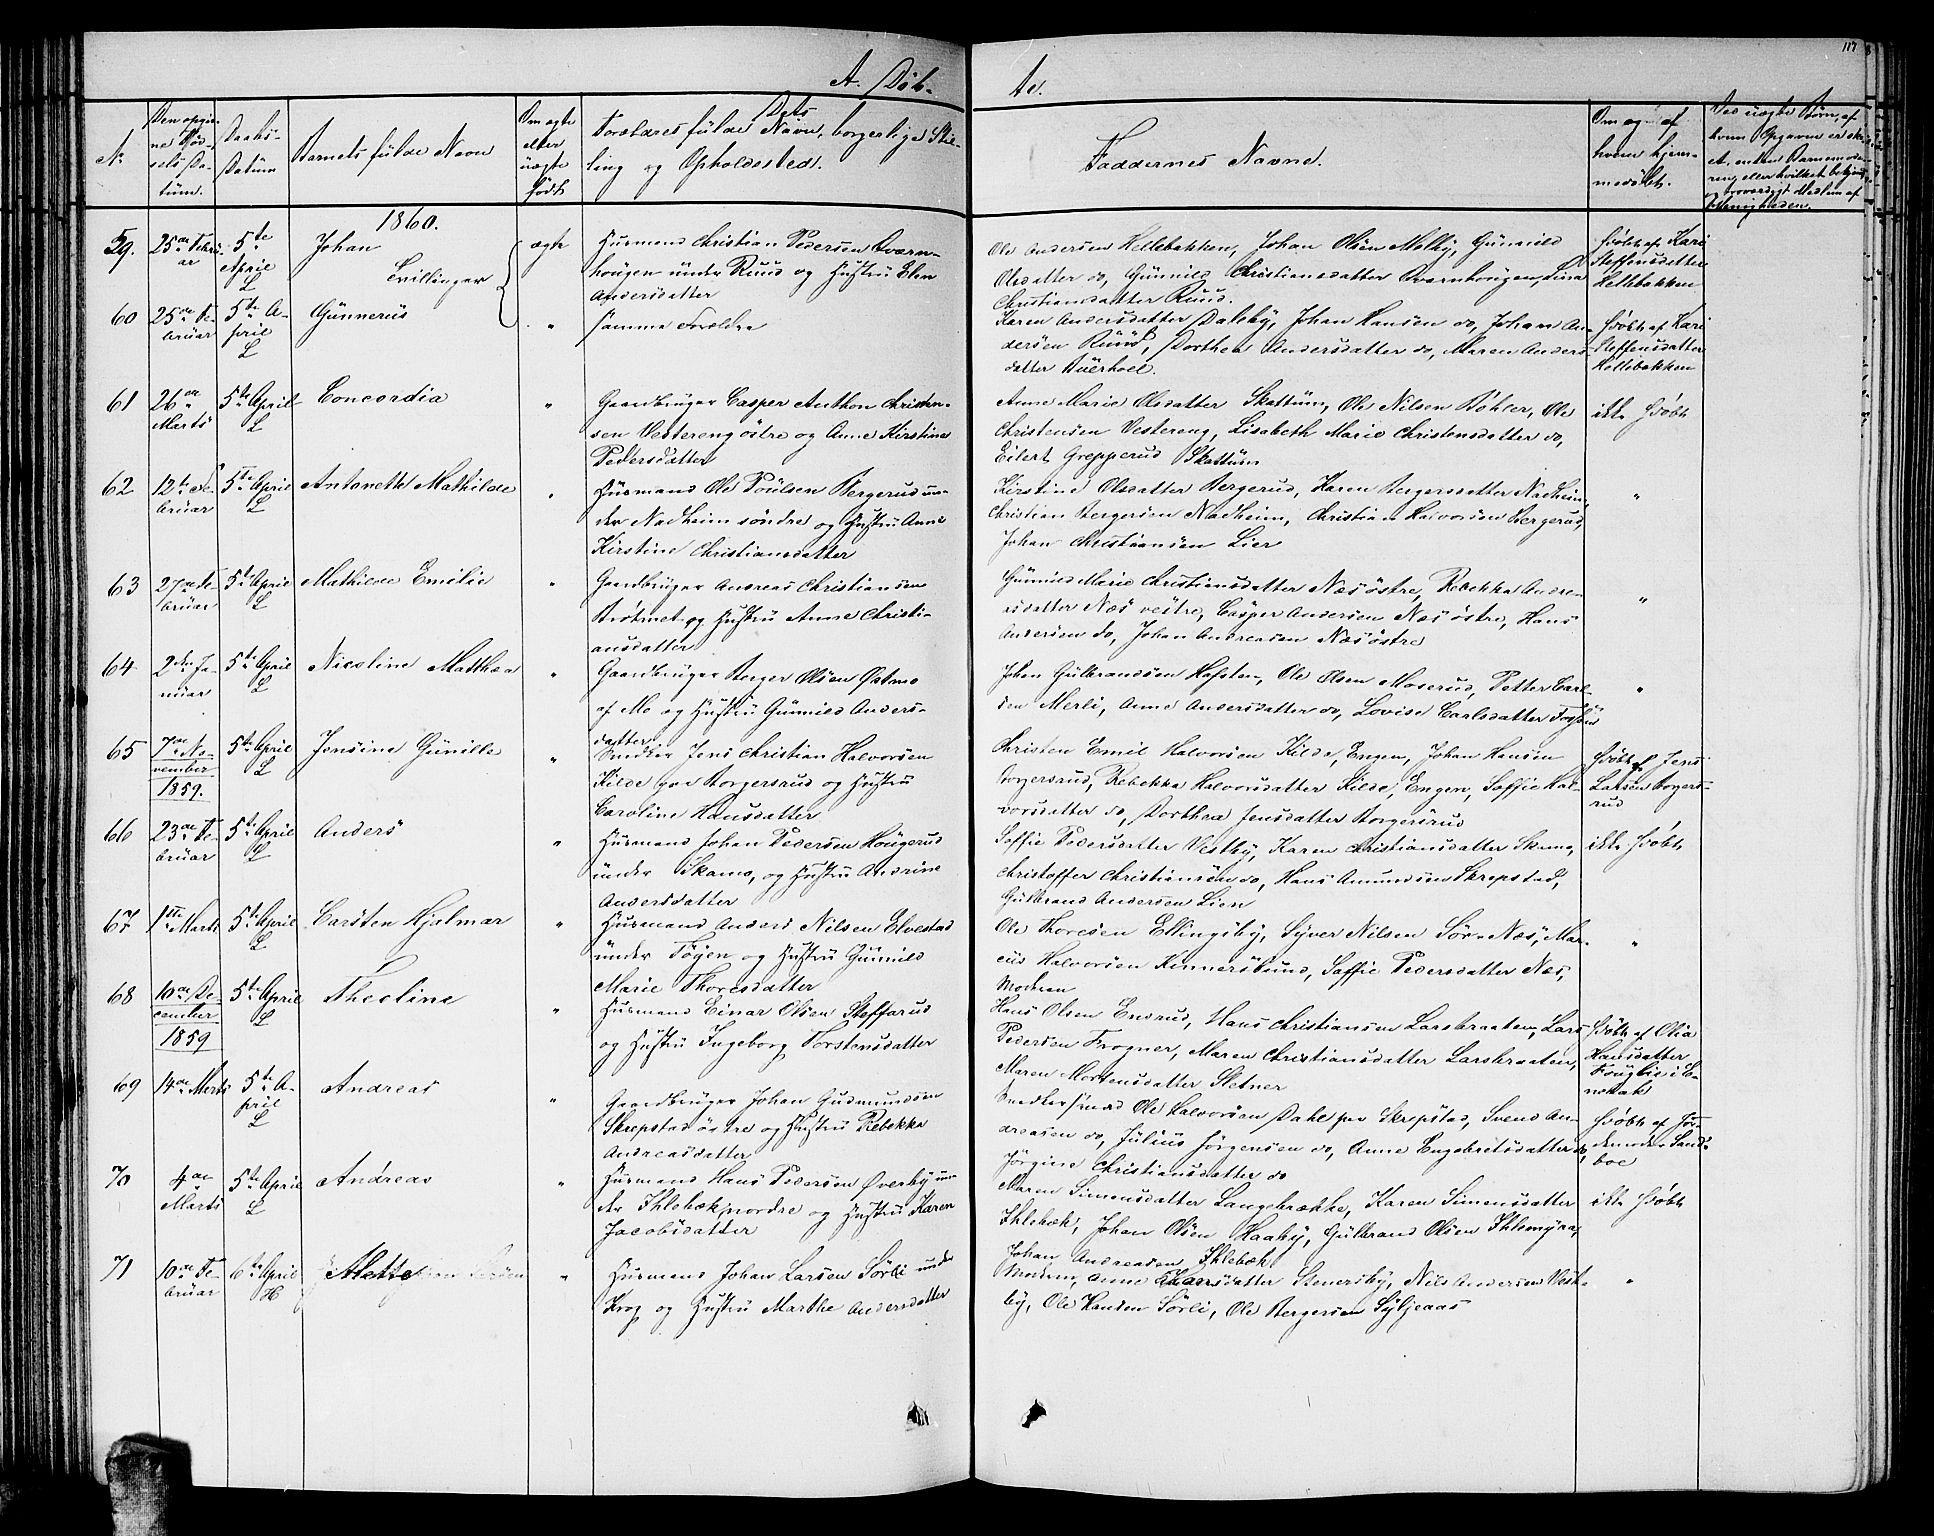 117
A. Døb-
te.
No
Den opgiv-
ne Fød-
sels Da-
tum.
Daabs-
Datum
Barnets fulde Navn
Om ægte
eller
uægte
født
Forældres fulde Navn, borgerlige Stil-
ling og Opholdssted.
Faddernes Navne.
Om og af
hvem hjem-
medøbt.
1860.
59. 25de Febru-
ar
5te
April
L
Johan
Tvillinger
ægte
Husmand Christian Pedersen Qværn-
hougen under Ruud og Hustru Elen
Andersdatter
Ole Andersen Hellebakken, Johan Olsen Melby, Gunnild
Olsdatter do, Gunnild Christiansdatter Qvernhougen, Lina
Christiansdatter Ruud.
Hdøbt af Kari
Steffensdatter
Hellebakken
60 25de Fe-
bruar
5te A-
pril
L
Gunnerus
"
samme Forældre
Karen Andersdatter Dalsby, Johan Hansen do, Johan An-
dersen Ruud, Dorthea Andersdatter do, Maren Anders-
datter Buerhoel.
Hdøbt af Kari
Steffensdatter
Hellebakken
61 26de
Marts
5te April
L
Concordia
"
Gaardbruger Casper Anthon Christen-
sen Vestereng östre og Anne Kirstine
Pedersdatter
Anne Marie Olsdatter Skattum, Ole Nilsen Bøhler, Ole
Christensen Vestereng, Lisabeth Marie Christensdatter do,
Eilert Grepperud Skattum
ikke hdøbt
62 12te Fe-
bruar
5te April
L
Antonette Mathilde
"
Husmand Ole Poulsen Bergerud un-
der Nadheim söndre og Hustru Anne
Kirstine Christiansdatter
Kirstine Olsdatter Bergerud, Karen Bergersdatter Nadheim,
Christian Bergersen Nadheim, Christian Halvorsen Bergerud,
Johan Christiansen Lier
"
63 27de Fe-
bruar
5te April
L
Mathilde Emilie
"
Gaardbruger Andreas Christiansen
Brötmet og Hustru Anne Christi-
ansdatter
Gunnild Marie Christiansdatter Næs östre, Rebekka Andre-
asdatter Næs vestre, Casper Andersen Næs östre, Hans
Andersen do, Johan Andreasen Næs östre
"
64 2den Ja-
nuar
5te April
L
Nicoline Matthea
"
Gaardbruger Berger Olsen Østmo
af Mo og Hustru Gunnild Anders-
datter
Johan Gulbrandsen Hofsten, Ole Olsen Moserud, Petter Carl-
sen Merli, Anne Andersdatter do, Lovise Carlsdatter Fossen
"
65 7de No-
vember
1859.
5te April
L
Jensine Gunille
"
Snedker Jens Christian Halvorsen
Kilde paa Borgersrud og Hustru
Caroline Hansdatter
Christen Emil Halvorsen Kilde, Engen, Johan Hansen
Borgersrud, Rebekka Halvorsdatter Kilde, Engen, Soffie Hal-
vorsdatter do, Dorthea Jensdatter Borgersrud
Hdøbt af Jens
Larsen Borgers-
rud
66 23de Fe-
bruar
5te April
L
Anders
"
Husmand Johan Pedersen Hougerud
under Skamo, og Hustru Andrine
Andersdatter
Soffie Pedersdatter Vestby, Karen Christiansdatter Skamo,
Christoffer Christiansen do, Hans Amundsen Skrepstad,
Gulbrand Andersen Lien
ikke hdøbt
67 1ste Marts
5te April
L
Carsten Hjalmar
"
Husmand Anders Nilsen Elvestad
under Töyen og Hustru Gunnild
Marie Thoresdatter
Ole Thoresen Ellingsby, Syver Nilsen Sör-Næs, Mar-
cus Halvorsen Kinnersbund, Soffie Pedersdatter Næs,
Moderen
"
68 10de De-
cember
1859
5te April
L
Theoline
"
Husmand Einar Olsen Steffarud
og Hustru Ingeborg Torstensdatter
Hans Olsen Endrud, Hans Christiansen Larsbraaten, Lars
Pedersen Frogner, Maren Christiansdatter Larsbraaten,
Maren Mortensdatter Sletner
Hdøbt af Olia
Hansdatter
Fouglie i E-
nebak
69 14de Marts
5te A-
pril
L
Andreas
"
Gaardbruger Johan Gudmundsen
Skrepstad östre og Hustru Rebekka
Andreasdatter
Snedkersvend Ole Halvorsen Dahl paa Skrepstad, Svend An-
dreasen do, Julius Jörgensen do, Anne Engebretsdatter do,
Jörgine Christiansdatter do
Hdøbt af Jor-
demoder Sand-
boe
70 4de
Marts
5te April
L
Andreas
"
Husmand Hans Pedersen Øverby un-
der Ihlebæk nordre og Hustru Karen
Jacobsdatter
Maren Simensdatter Langebrække, Karen Simensdatter
Ihlebæk, Johan Olsen Haaby, Gulbrand Olsen Ihlemyra,
Johan Andreasen Ihlebæk
ikke hdøbt
71 10de Fe-
bruar
6te April
H
Mette
"
Husmand Johan Larsen Sörli under
Krog og Hustru Marthe Andersdatter
Moderen, Anne Larsdatter Stenersby, Nils Andersen Vest-
by, Ole Hansen Sörli, Ole Bergersen Syljeaas
"